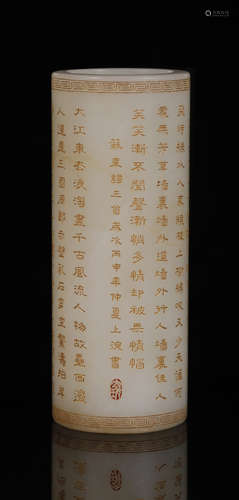 飛時綠水人家繞枝上柳綿吹又少天涯何
處無芳草墻裏墻外道墻外行人墻裏佳人
笑笑漸不聞聲漸悄多情却被無情惱
三首歲次丙申年仲夏上浣書
大江東去浪淘盡千古風流人物故壘西邊
人道是三國周郎赤壁亂石穿空驚濤拍岸